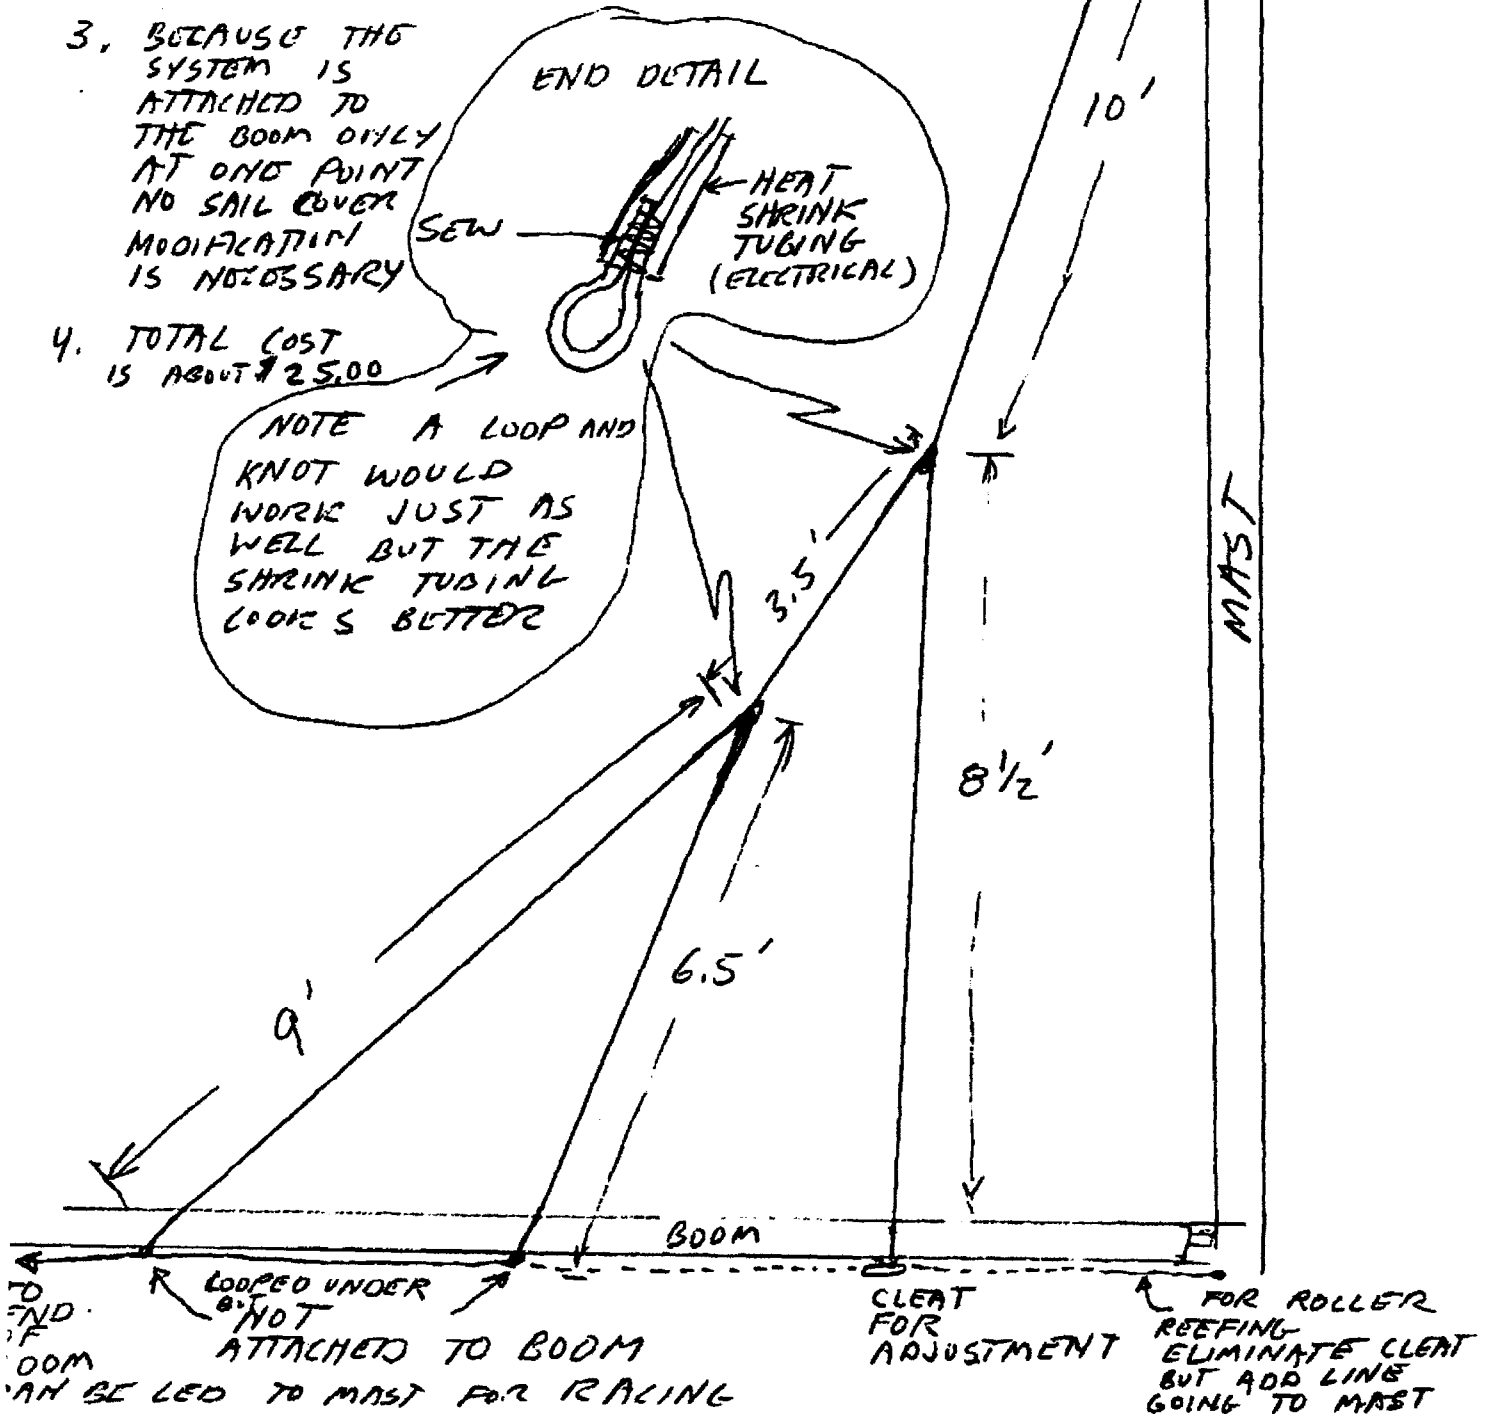 3. BECAUSE THE
SYSTEM IS
ATTACHED TO
THE BOOM ONLY
AT ONE POINT
NO SAIL COVER
MODIFICATION
IS NECESSARY
4. TOTAL COST
IS ABOUT $25.00
END DETAIL
SEW
HEAT
SHRINK
TUBING
(ELECTRICAL)
NOTE A LOOP AND
KNOT WOULD
WORK JUST AS
WELL BUT THE
SHRINK TUBING
LOOKS BETTER
10'
3.5'
8 1/2'
MAST
6.5'
9'
BOOM
LOOPED UNDER
BUT NOT
ATTACHED TO BOOM
END
OOM
AN BE LED TO MAST FOR RACING
CLEAT
FOR
ADJUSTMENT
FOR ROLLER
REEFING
ELIMINATE CLEAT
BUT ADD LINE
GOING TO MAST